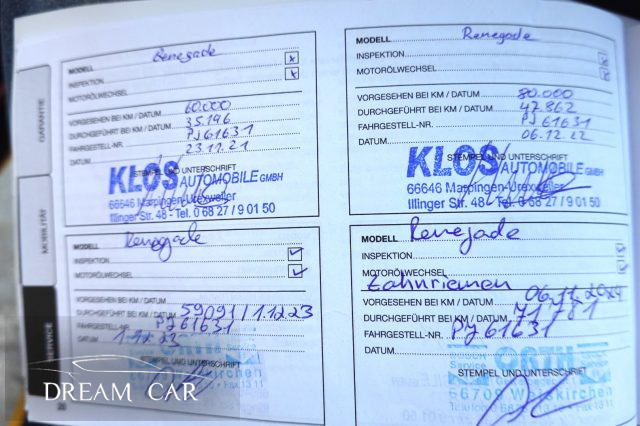 GARANTIE
MOBILITÄT
SERVICE
MODELL Renegade
INSPEKTION x
MOTORÖLWECHSEL x
VORGESEHEN BEI KM / DATUM 60.000
DURCHGEFÜHRT BEI KM / DATUM 35.196
FAHRGESTELL-NR. PJ61631
DATUM 23.11.21
STEMPEL UND UNTERSCHRIFT
KLOS AUTOMOBILE GMBH
66646 Marpingen-Urexweiler
Illinger Str. 48 - Tel. 0 68 27 / 9 01 50
MODELL Renegade
INSPEKTION
MOTORÖLWECHSEL
VORGESEHEN BEI KM / DATUM 80.000
DURCHGEFÜHRT BEI KM / DATUM 47.862
FAHRGESTELL-NR. PJ61631
DATUM 06.12.22
STEMPEL UND UNTERSCHRIFT
KLOS AUTOMOBILE GMBH
66646 Marpingen-Urexweiler
Illinger Str. 48 - Tel. 0 68 27 / 9 01 50
MODELL Renegade
INSPEKTION ✓
MOTORÖLWECHSEL ✓
VORGESEHEN BEI KM / DATUM
DURCHGEFÜHRT BEI KM / DATUM 59091/1.12.23
FAHRGESTELL-NR. PJ61631
DATUM 1.12.23
STEMPEL UND UNTERSCHRIFT
MODELL Renegade
INSPEKTION
MOTORÖLWECHSEL
Zahnriemen
VORGESEHEN BEI KM / DATUM 06.11.2024
DURCHGEFÜHRT BEI KM / DATUM 71781
FAHRGESTELL-NR. PJ61631
DATUM
STEMPEL UND UNTERSCHRIFT
ORTH
66709 Weiskirchen
DREAM CAR